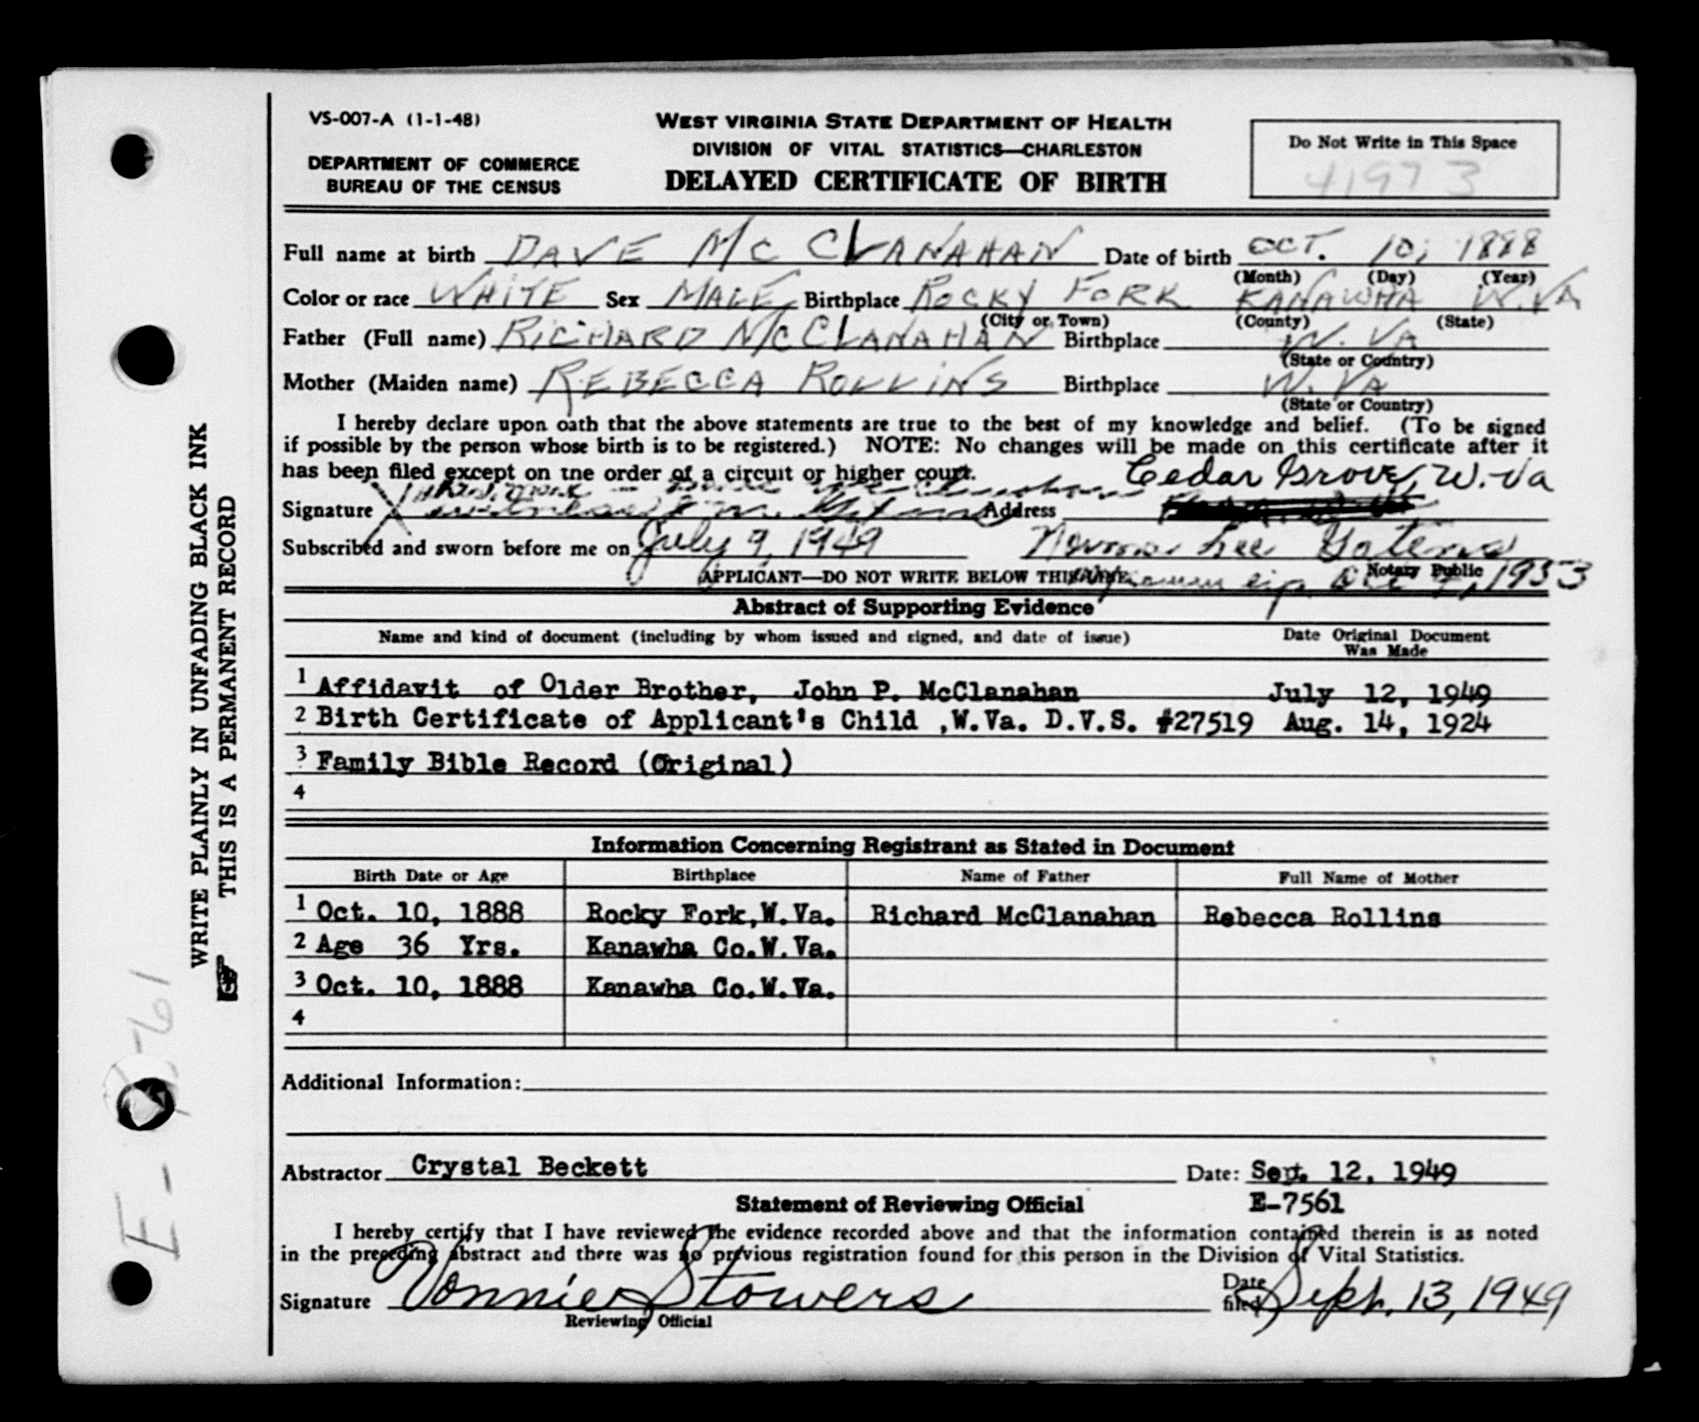 VS-007-A (1-1-48)
DEPARTMENT OF COMMERCE
BUREAU OF THE CENSUS
WEST VIRGINIA STATE DEPARTMENT OF HEALTH
DIVISION OF VITAL STATISTICS—CHARLESTON
DELAYED CERTIFICATE OF BIRTH
Do Not Write in This Space
41973
Full name at birth DAVE MCCLANAHAN Date of birth OCT. 10, 1888
(Month) (Day) (Year)
Color or race WHITE Sex MALE Birthplace ROCKY FORK KANAWHA W.VA
(City or Town) (County) (State)
Father (Full name) RICHARD MCCLANAHAN Birthplace W. VA
(State or Country)
Mother (Maiden name) REBECCA ROLLINS Birthplace W. VA
(State or Country)
I hereby declare upon oath that the above statements are true to the best of my knowledge and belief. (To be signed
if possible by the person whose birth is to be registered.) NOTE: No changes will be made on this certificate after it
has been filed except on the order of a circuit or higher court.
Cedar Grove, W. Va
Signature X his mark - Dave McClanahan
witness Address
Subscribed and sworn before me on July 9, 1949 Norma Lee
Notary Public
APPLICANT—DO NOT WRITE BELOW THIS LINE 1953
Abstract of Supporting Evidence
Name and kind of document (including by whom issued and signed, and date of issue) Date Original Document
Was Made
1 Affidavit of Older Brother, John P. McClanahan July 12, 1949
2 Birth Certificate of Applicant's Child ,W.Va. D.V.S. #27519 Aug. 14, 1924
3 Family Bible Record (Original)
4
Information Concerning Registrant as Stated in Document
Birth Date or Age Birthplace Name of Father Full Name of Mother
1 Oct. 10, 1888 Rocky Fork,W.Va. Richard McClanahan Rebecca Rollins
2 Age 36 Yrs. Kanawha Co.W.Va.
3 Oct. 10, 1888 Kanawha Co.W.Va.
4
Additional Information:
Abstractor Crystal Beckett Date: Sept. 12, 1949
Statement of Reviewing Official E-7561
I hereby certify that I have reviewed the evidence recorded above and that the information contained therein is as noted
in the preceding abstract and there was no previous registration found for this person in the Division of Vital Statistics.
Signature Vonnie Stowers Date filed Sept. 13, 1949
Reviewing Official
WRITE PLAINLY IN UNFADING BLACK INK
THIS IS A PERMANENT RECORD